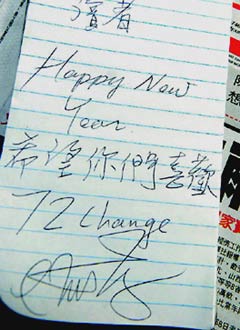 讀者
Happy New
Year
希望你們喜歡
72 Change